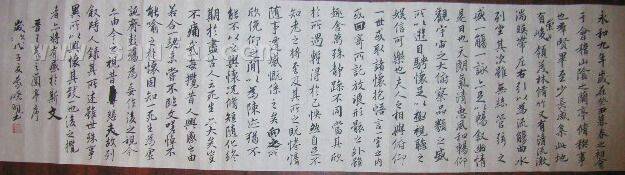 永和九年歲在癸丑暮春之初會
于會稽山陰之蘭亭脩稧事
也羣賢畢至少長咸集此地
有崇山峻領茂林脩竹又有清流激
湍暎帶左右引以為流觴曲水
列坐其次雖無絲竹管弦之
盛一觴一詠亦足以暢敘幽情
是日也天朗氣清惠風和暢仰
觀宇宙之大俯察品類之盛
所以遊目騁懷足以極視聽之
娛信可樂也夫人之相與俯仰
一世或取諸懷抱悟言一室之內
或因寄所託放浪形骸之外雖
趣舍萬殊靜躁不同當其欣
於所遇暫得於己怏然自足不
知老之將至及其所之既惓情
隨事遷感慨係之矣向之所
欣俛仰之間以為陳迹猶不
能不以之興懷況脩短隨化終
期於盡古人云死生亦大矣豈
不痛哉每攬昔人興感之由
若合一契未嘗不臨文嗟悼不
能喻之於懷固知一死生為虛
誕齊彭殤為妄作後之視今
亦由今之視昔悲夫故列
敘時人錄其所述雖世殊事
異所以興懷其致一也後之攬
者亦將有感於斯文
晉王羲之蘭亭序
歲次戊子